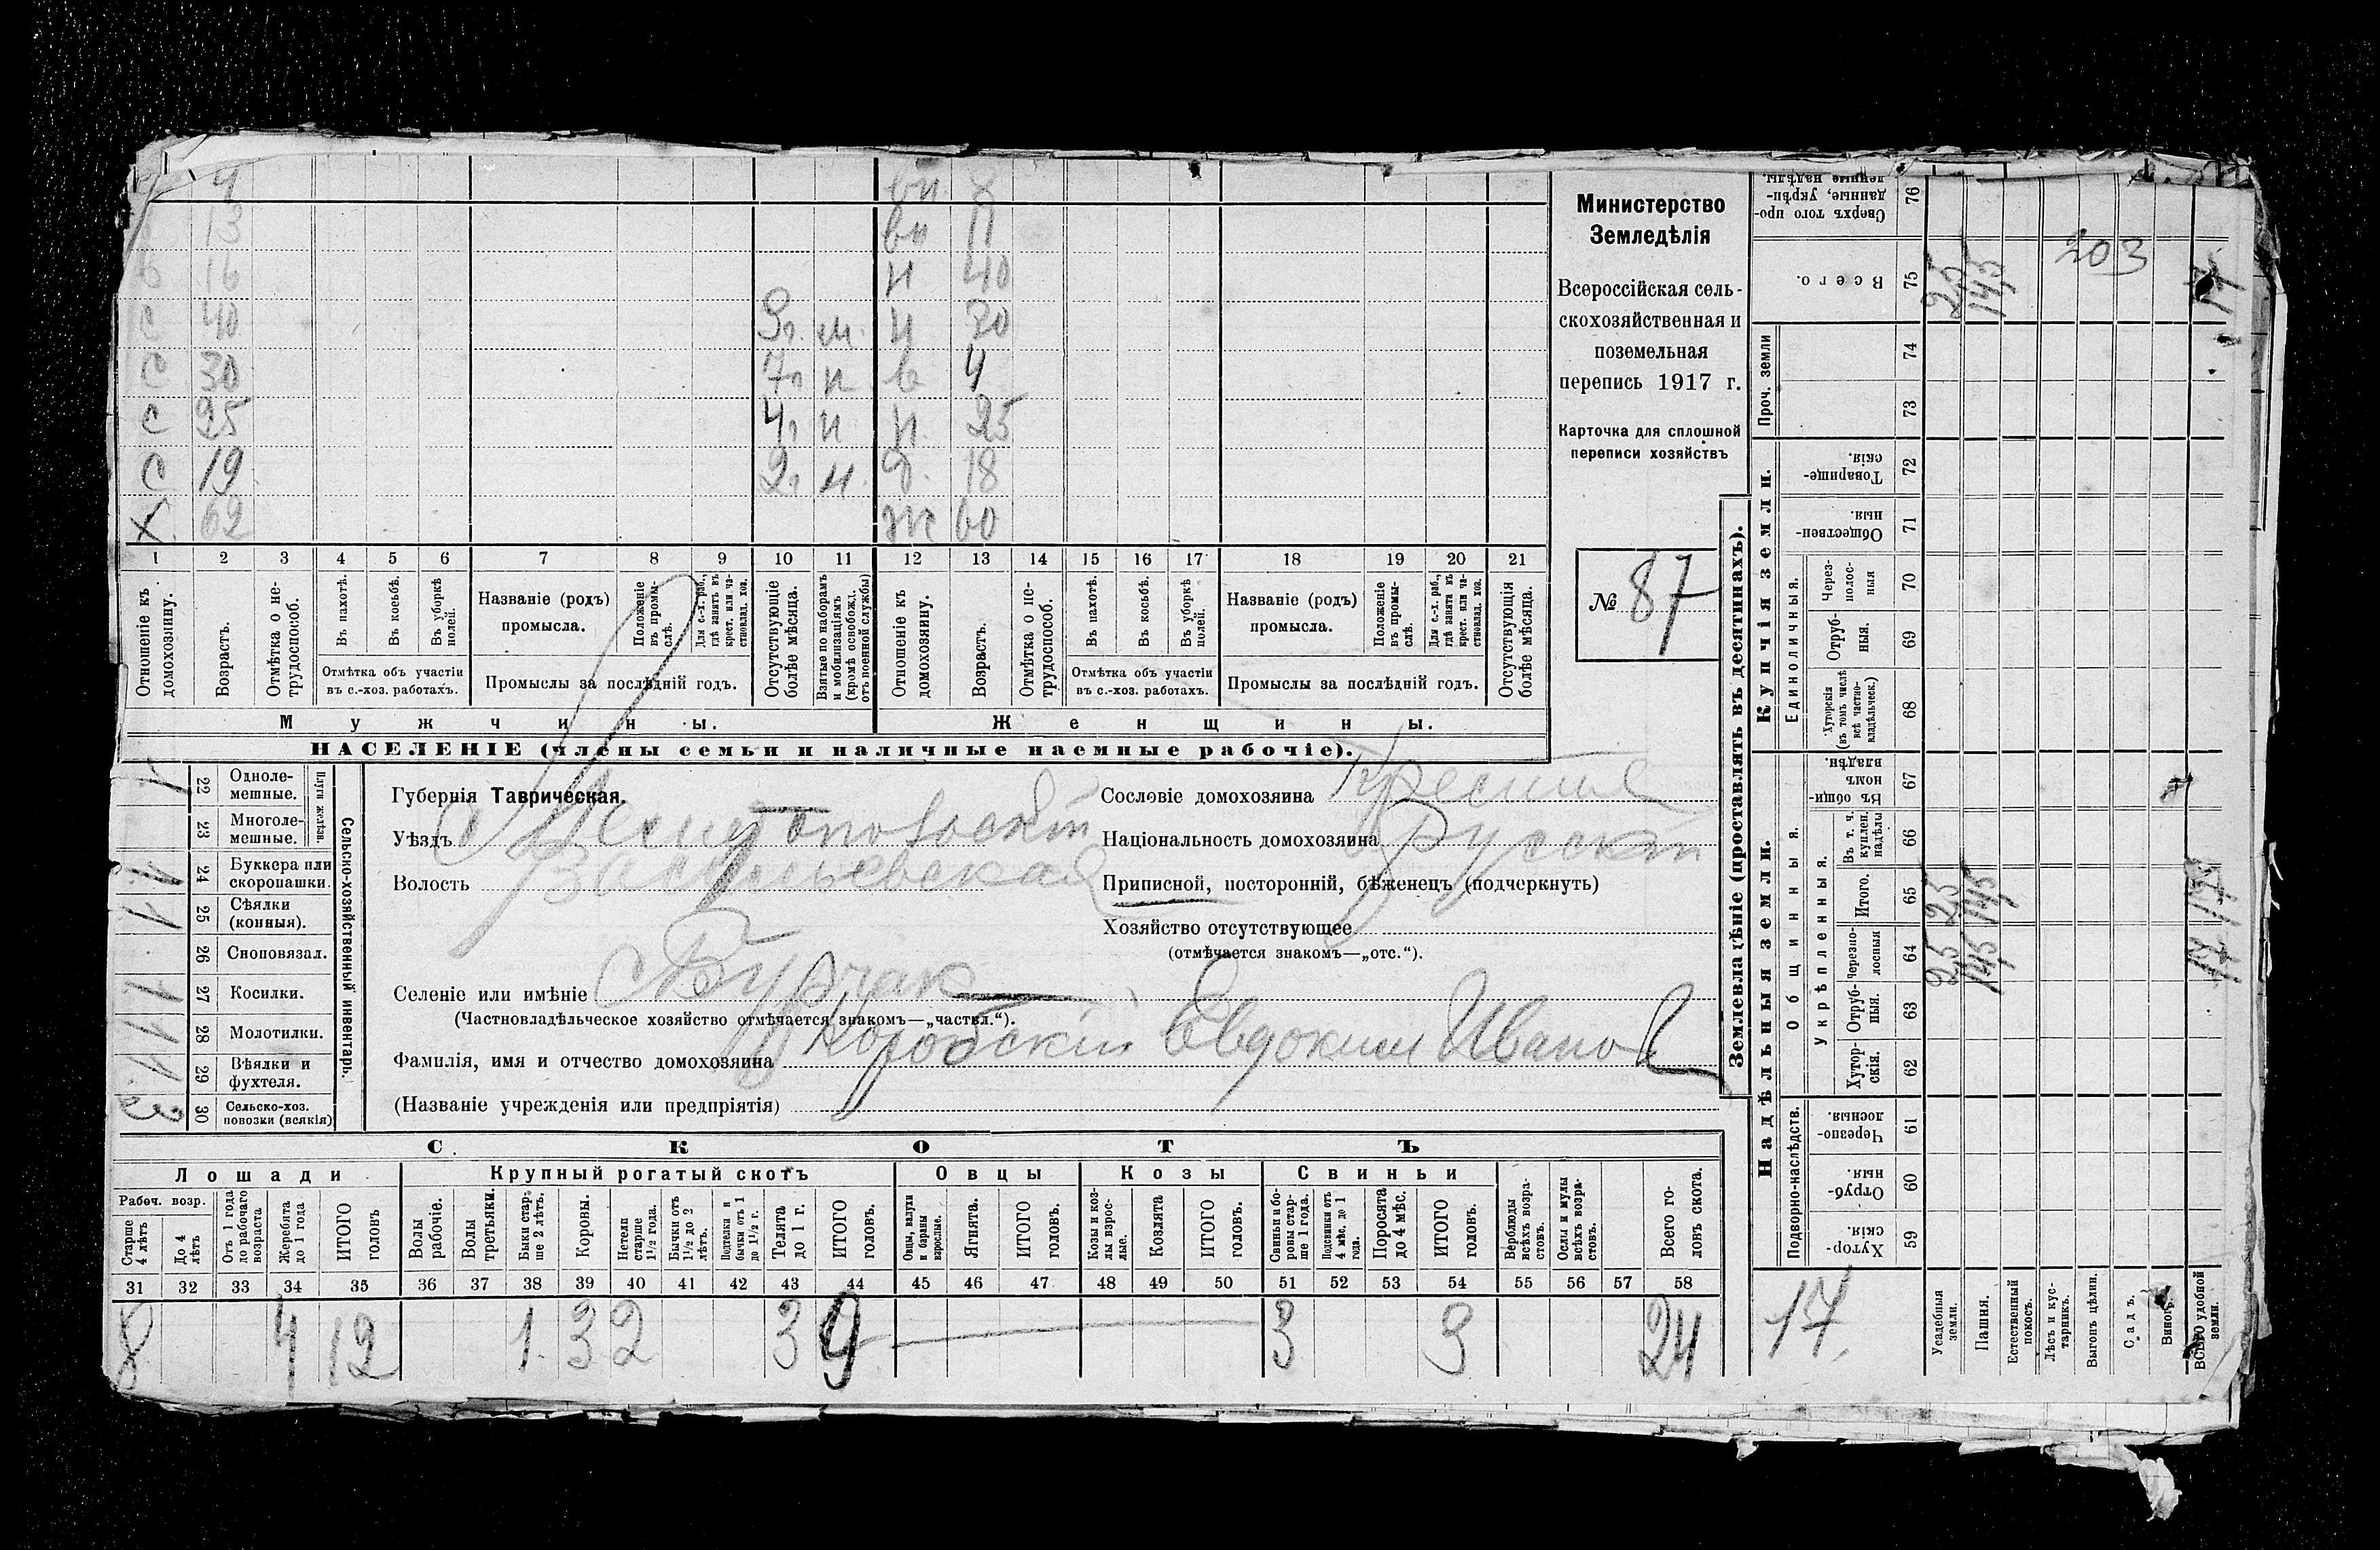 4 вн. 8
13 вн 11
в 16 н 40
с 40 9п. м. н 20
с 30 7п н в 4
с 25 4п н. н. 25
с 19 2п н. д. 18
X 62 ж 60
1 2 3 4 5 6 7 8 9 10 11 12 13 14 15 16 17 18 19 20 21
Отношеніе къ домохозяину.
Возрастъ.
Отмѣтка о не-трудоспособ.
Въ пахотѣ.
Въ косьбѣ.
Въ уборкѣ полей.
Отмѣтка объ участіи
въ с.-хоз. работахъ.
Названіе (родъ)
промысла.
Положеніе въ промы-слѣ.
Для с.-х. раб., гдѣ занятъ въ крест. или ча-стновлад. хоз.
Промыслы за послѣдній годъ.
Отсутствующіе болѣе мѣсяца.
Взятые по наборамъ и мобилизаціямъ (кромѣ освобожд. отъ военной службы)
Отношеніе къ домохозяину.
Возрастъ.
Отмѣтка о не-трудоспособ.
Въ пахотѣ.
Въ косьбѣ.
Въ уборкѣ полей.
Отмѣтка объ участіи
въ с.-хоз. работахъ.
Названіе (родъ)
промысла.
Положеніе въ промы-слѣ.
Для с.-х. раб., гдѣ занята въ крест. или ча-стновлад. хоз.
Промыслы за послѣдній годъ.
Отсутствующія болѣе мѣсяца.
Мужчины. Женщины.
НАСЕЛЕНІЕ (члены семьи и наличные наемные рабочіе).
Министерство
Земледѣлія
Всероссійская сель-
скохозяйственная и
поземельная
перепись 1917 г.
Карточка для сплошной
переписи хозяйствъ
№ 87
Губернія Таврическая.
Уѣздъ Мелитопольскій
Волость Васильевская
Селеніе или имѣніе Бурчак
(Частновладѣльческое хозяйство отмѣчается знакомъ—„частвл.“).
Фамилія, имя и отчество домохозяина Евдоким Иванов
(Названіе учрежденія или предпріятія)
Сословіе домохозяина Крестья
Національность домохозяина Русскій
Приписной, посторонній, бѣженецъ (подчеркнуть)
Хозяйство отсутствующее
(отмѣчается знакомъ—„отс.“).
Сельско-хозяйственный инвентарь.
Плуги желѣзн.
22 Одноле-мешные. 1
23 Многоле-мешные.
24 Буккера или скоропашки. 1
25 Сѣялки (конныя). 1
26 Сноповязал.
27 Косилки. 1
28 Молотилки. 1
29 Вѣялки и фухтеля. 1
30 Сельско-хоз. повозки (всякія) 3
СКОТЪ
Лошади Крупный рогатый скотъ Овцы Козы Свиньи
Рабоч. возр.
Старше 4 лѣтъ
До 4 лѣтъ
Отъ 1 года до рабочаго возраста
Жеребята до 1 года
ИТОГО головъ
Волы рабочіе.
Волы третьяки.
Быки стар-ше 2 лѣтъ.
Коровы.
Нетели старше 1½ года.
Бычки отъ 1½ до 2 лѣтъ.
Подтелки и бычки отъ 1 до 1½ г.
Телята до 1 г.
ИТОГО головъ.
Овцы, валухи и бараны взрослые.
Ягнята.
ИТОГО головъ.
Козы и коз-лы взрос-лые.
Козлята
ИТОГО головъ.
Свиньи и бо-ровы стар-ше 1 года.
Подсвинки отъ 4 мѣс. до 1 года.
Поросята до 4 мѣс.
ИТОГО головъ.
Верблюды всѣхъ возра-стовъ.
Ослы и мулы всѣхъ возра-стовъ.
Всего го-ловъ скота.
31 32 33 34 35 36 37 38 39 40 41 42 43 44 45 46 47 48 49 50 51 52 53 54 55 56 57 58
8 4 12 1 3 2 3 9 3 3 24
Землевладѣніе (проставлять въ десятинахъ).
Надѣльныя земли.
Купчія земли.
Проч. земли
Подворно-наслѣдств.
Общинныя.
Укрѣпленныя.
Единоличныя.
Сверхъ того про-данные, укрѣп-ленные надѣлы. 76
Всего. 75 25 145 203 17
74
73
Товарище-скія. 72
Обществен-ныя 71
Через-полос-ныя 70
Отруб-ныя. 69
Хуторскія (въ томъ числѣ всѣ частно-владѣльческ.) 68
Въ общин-номъ владѣн. 67
Въ т. ч. куплен. надѣлы 66
Итого. 65 25 145
Черезпо-лосныя 64 25 145
Отруб-ныя. 63
Хутор-скія. 62
Черезпо-лосныя 61
Отруб-ныя. 60
Хутор-скія. 59
17.
Усадебныя земли.
Пашня.
Естественный покосъ.
Лѣсъ и кус-тарникъ.
Выгонъ цѣлин.
Садъ.
Виногр.
ВСЕГО удобной земли.